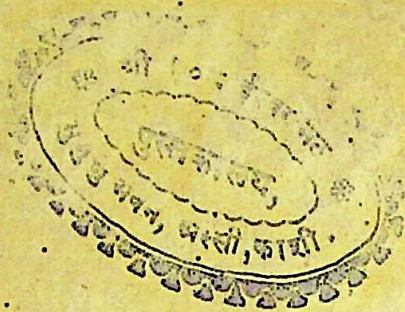 श्री १०८
पुस्तकालय,
मुमुक्षु भवन, अस्सी, काशी.